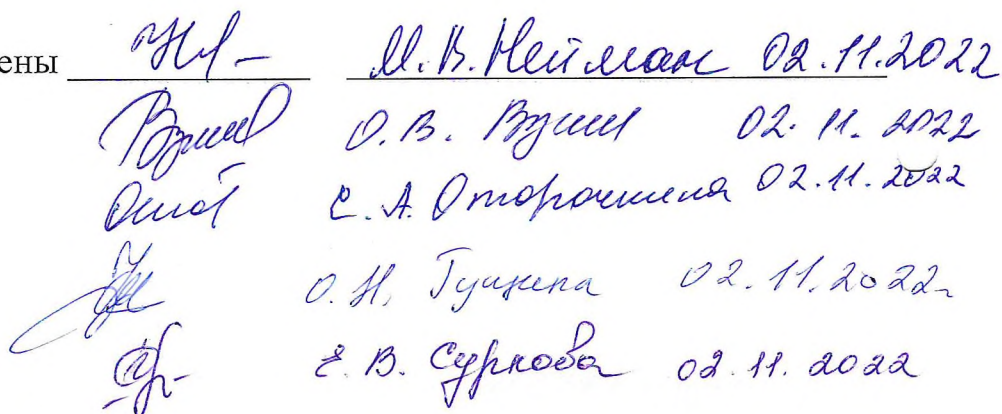 ены М.В. Нейман 02.11.2022
О.В. 02.11.2022
С.А. Оторочкина 02.11.2022
О.Н. 02.11.2022
Е.В. Суркова 02.11.2022